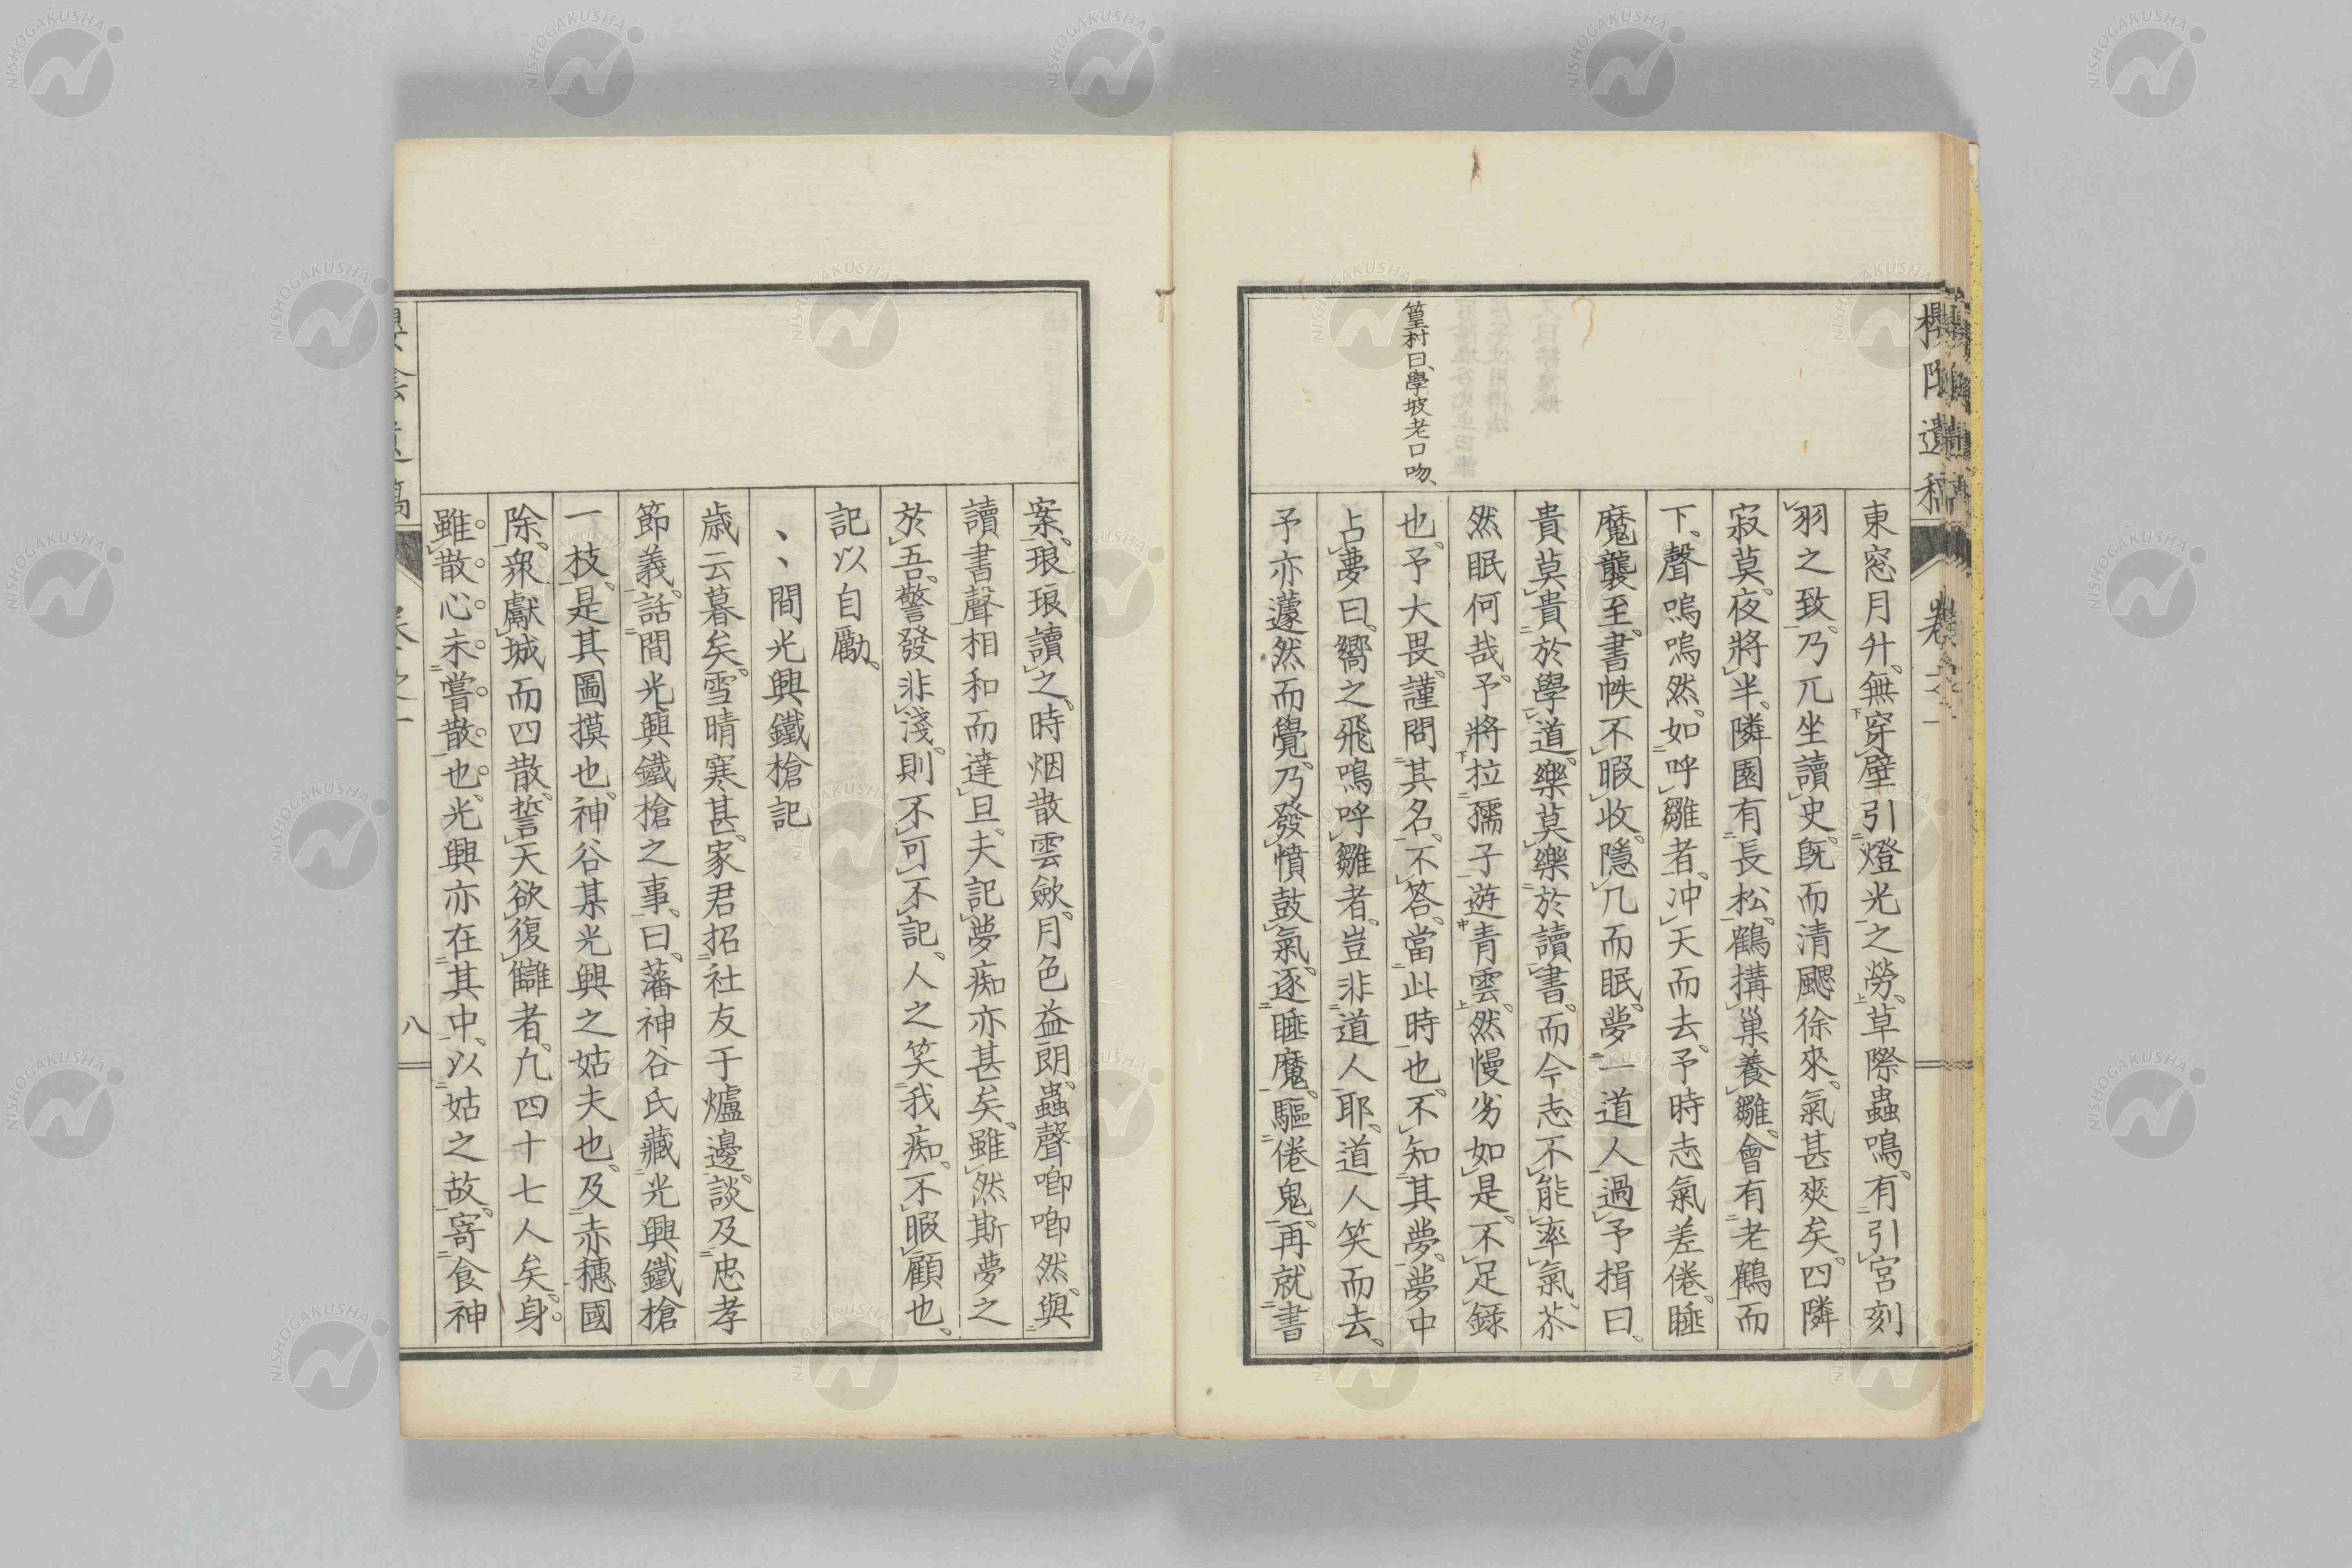 篁村曰、學坡老口吻、
東窓月升、無穿壁引燈光之勞、草際蟲鳴、有引宮刻
羽之致、乃兀坐讀史、既而清颸徐來、氣甚爽矣、四隣
寂莫、夜將半、隣園有長松、鶴搆巢養雛、會有老鶴而
下、聲嗚嗚然、如呼雛者、冲天而去、予時志氣差倦、睡
魔襲至、書帙不暇收、隱几而眠、夢一道人過予揖曰、
貴莫貴於學道、樂莫樂於讀書、而今志不能率氣、苶
然眠何哉、予將拉孺子遊青雲、然慢劣如是、不足錄
也、予大畏、謹問其名、不答、當此時也、不知其夢、夢中
占夢曰、嚮之飛鳴呼雛者、豈非道人耶、道人笑而去、
予亦蘧然而覺、乃發憤鼓氣、逐睡魔、驅倦鬼、再就書
案、琅琅讀之、時烟散雲斂、月色益朗、蟲聲喞喞然、與
讀書聲相和而達旦、夫記夢痴亦甚矣、雖然斯夢之
於吾、警發非淺、則不可不記、人之笑我痴、不暇顧也、
記以自勵、
、、間光興鐵槍記
歳云暮矣、雪晴寒甚、家君招社友于爐邊、談及忠孝
節義、話間光興鐵槍之事、曰、藩神谷氏藏光興鐵槍
一枝、是其圖摸也、神谷某光興之姑夫也、及赤穗國
除、衆獻城而四散、誓天欲復讎者、凢四十七人矣、身
雖散心未嘗散也、光興亦在其中、以姑之故、寄食神
八